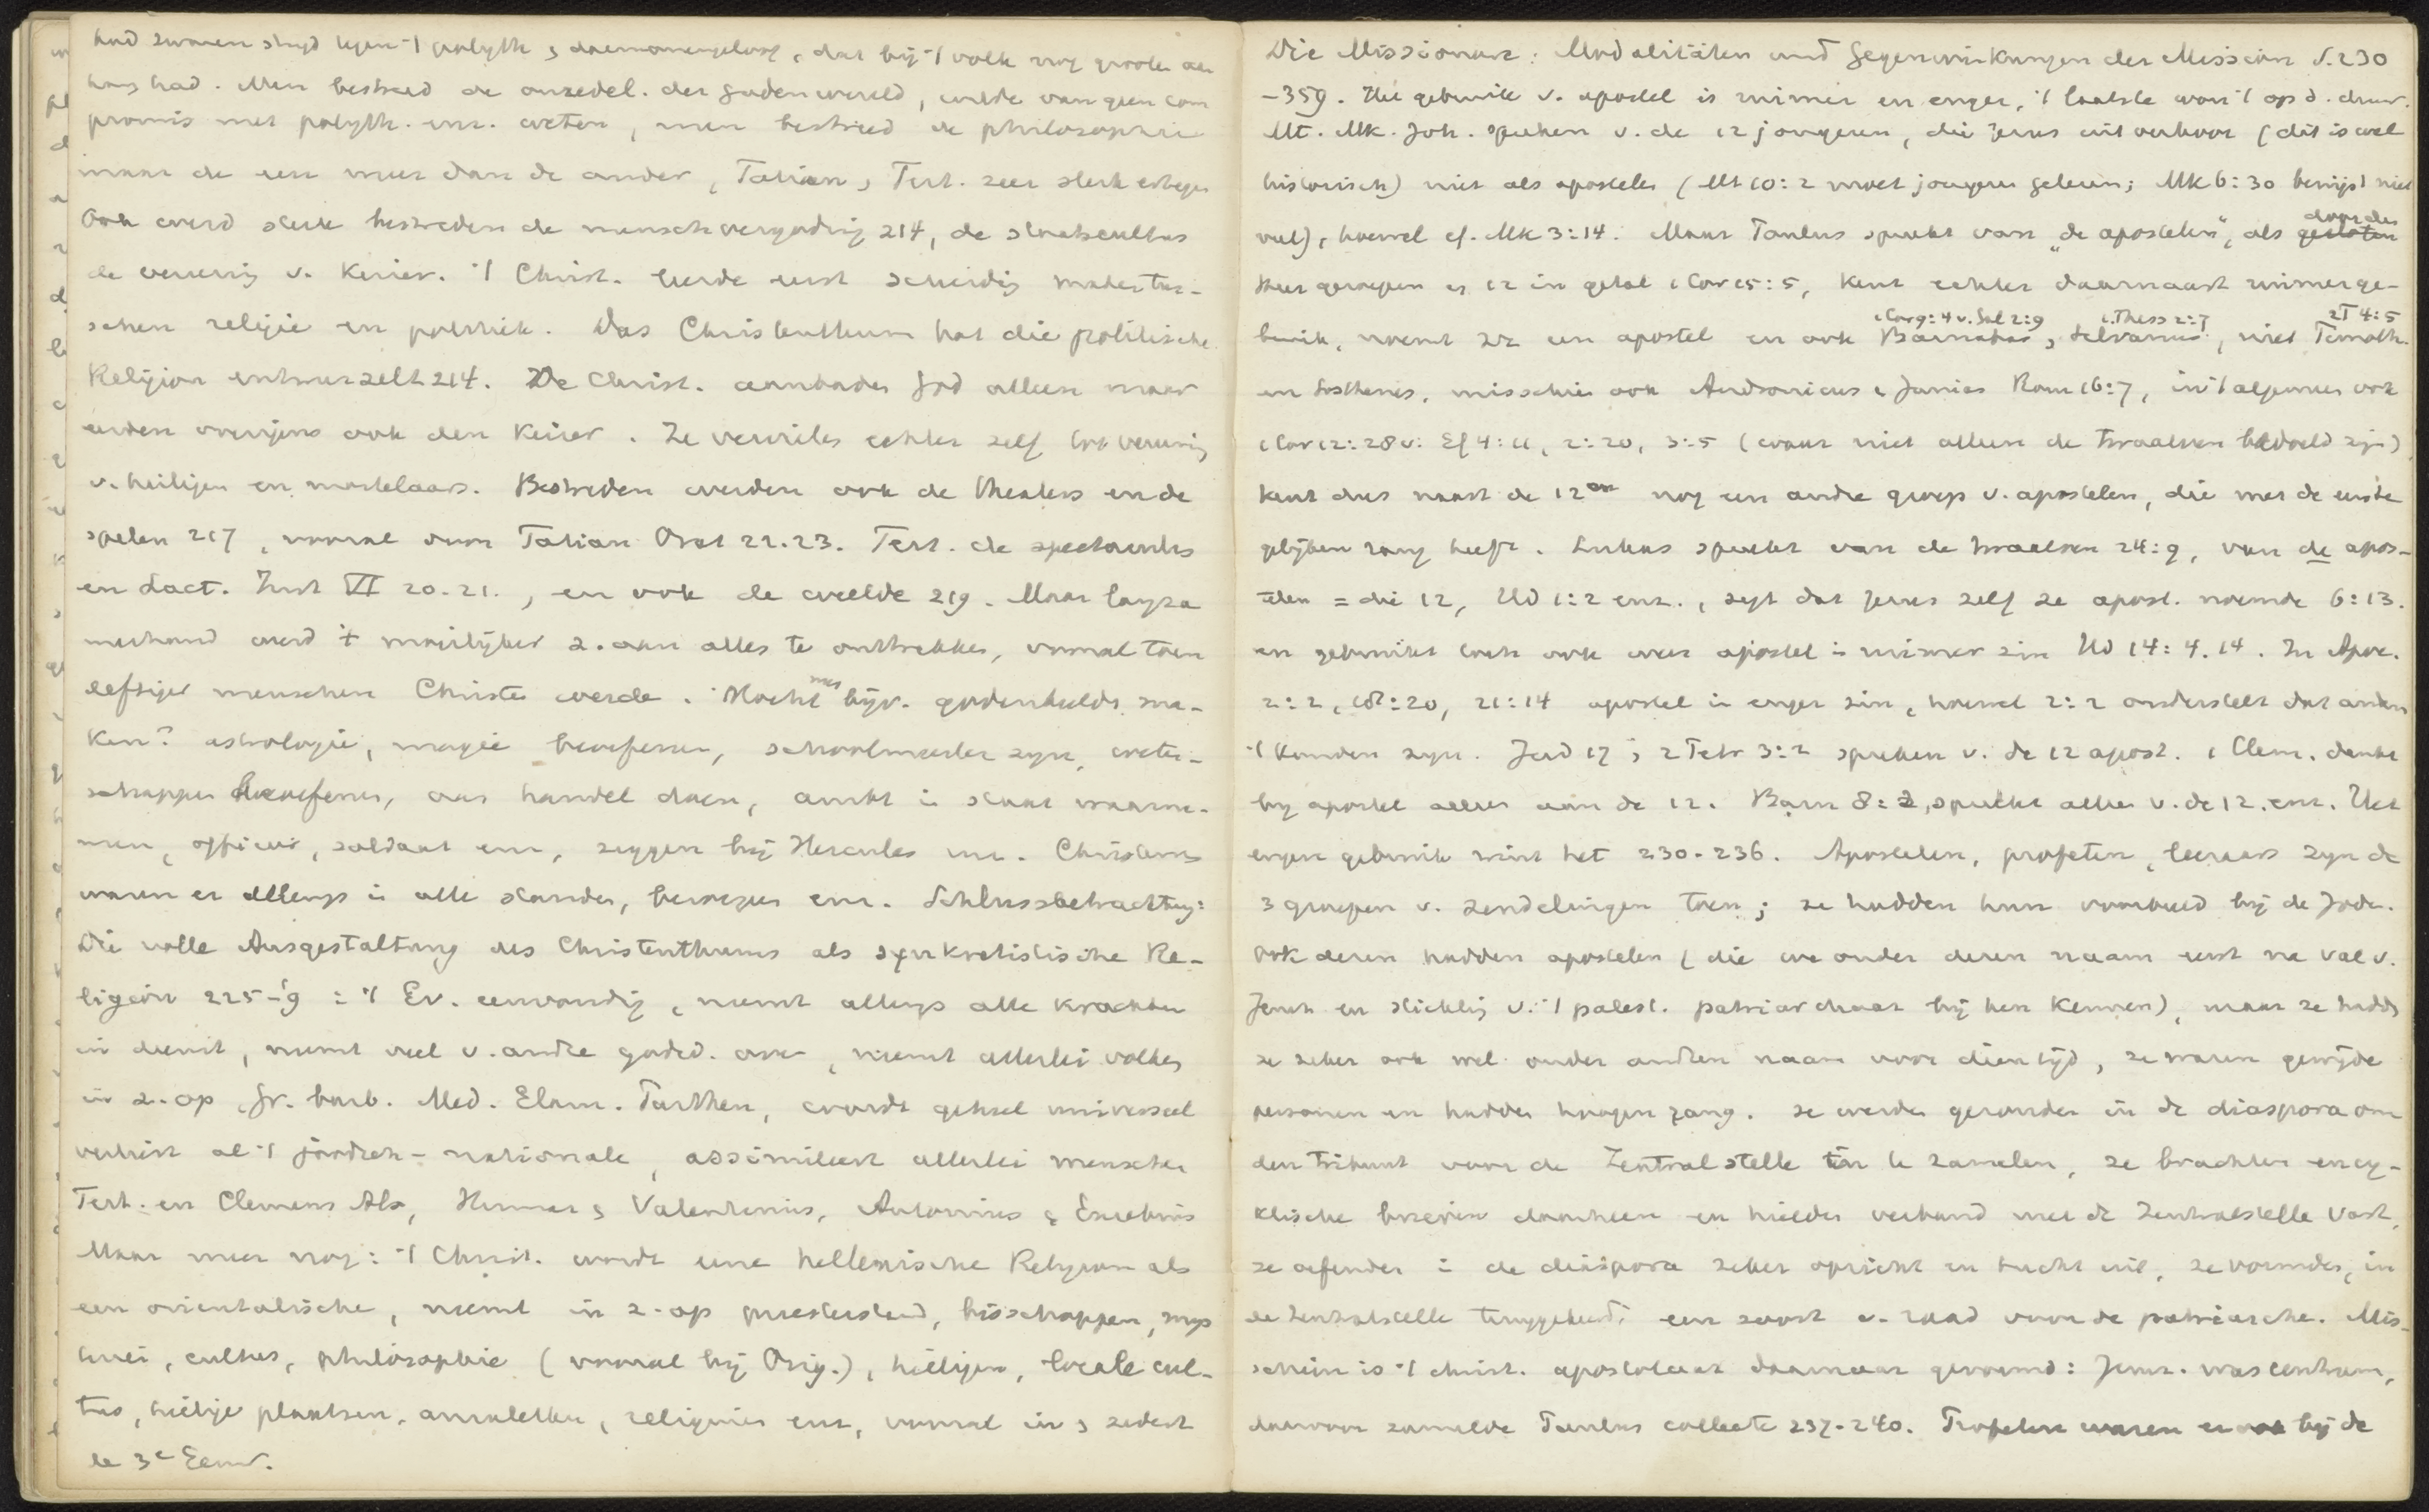 had zwaren strijd tegen 't polyth. & daemonengeloof, dat bij 't volk nog grooten aan
hang had. Men bestreed de onzedel. der godenwereld, wilde van geen com
promis met polyth. enz. weten, men bestreed de philosophie
maar de een meer dan de ander, Tatian, Tert. zeer sterk ertegen
Ook werd sterk bestreden de menschvergoding 214, de staatscultus
de vereering v. keizer. 't Christ. leerde eerst scheiding maken tus-
schen religie en politiek. Das Christenthum hat die politische
Religion entwurzelt 214. De Christ. aanbaden God alleen maar
eerden overigens ook den Keizer. Ze vervielen echter zelf tot vereering
v. heiligen en martelaars. Bestreden werden ook de theaters en de
spelen 217, vooral door Tatian Orat 22.23. Tert. de spectaculis
en Lact. Inst VI 20-21., en ook de weelde 219. Maar langza
merhand werd 't moeilijker z. aan alles te onttrekken, vooral toen
deftiger menschen Christen werden. Mocht men bijv. godenbeelden ma-
ken? astrologie, magie beoefenen, schoolmeester zijn, weten-
schappen beoefenen, aan handel doen, ambt in staat waarne-
men, officier, soldaat enz, zeggen bij Hercules enz. Christenen
waren er allengs in alle standen, beroepen enz. Schlussbetrachtung:
Die volle Ausgestaltung des Christenthums als synkretistische Re-
ligion 225-'9 : 't Ev. eenvoudig, neemt allengs alle krachten
in dienst, neemt veel v. andre godsd. over, neemt allerlei volken
in z. op, Gr. barb. Med. Elam. Parthen, wordt geheel universeel
verliest al 't joodsch-nationale, assimileert allerlei menschen
Tert. en Clemens Alx, Hermas & Valentinus, Antonius & Eusebius
Maar meer nog: 't Christ. wordt eene hellenische Religion als
een orientalische, neemt in z. op priesterstand, bisschoppen, mys
teriën, cultus, philosophie (vooral bij Orig.), heiligen, locale cul-
tus, heilige plaatsen, amuletten, relieken enz, vooral in & sedert
de 3e Eeuw.
Die Missionare: Modalitäten und Gegenwirkungen der Mission S. 230
-359. Het gebruik v. apostel is ruimer en enger, 't laatste won 't op d. duur.
Mt. Mk. Joh. spreken v. de 12 jongeren, die Jezus uitverkoor (dit is wel
historisch) niet als apostelen (Mt 10:2 moet jongeren gelezen; Mk 6:30 bewijst niet
veel), hoewel cf. Mk 3:14. Maar Paulus spreekt van "de apostelen", als door den
Heer geroepen en 12 in getal 1 Cor 15:5, kent echter daarnaast ruimer ge-
1 Cor 9:4 v. Gal 2:9 1 Thess 2:7 2T 4:5
bruik, noemt zich een apostel en ook Barnabas, Silvanus, niet Timoth.
en Sosthenes, misschien ook Andronicus & Junias Rom 16:7, in 't algemeen ook
1 Cor 12:28 v. Ef 4:11, 2:20, 3:5 (waar niet alleen de twaalven bedoeld zijn)
kent dus naast de 12en nog een andre groep v. apostelen, die met de eerste
gelijken rang heeft. Lukas spreekt van de twaalven 24:9, van de apos-
telen = die 12, Hd 1:2 enz., zegt dat Jezus zelf ze apost. noemde 6:13.
en gebruikt toch ook weer apostel in ruimer zin Hd 14:4.14. In Apoc.
2:2, 18:20, 21:14 apostel in enger zin, hoewel 2:2 onderstelt dat andren
't konden zijn. Jud 17 & 2 Petr 3:2 spreken v. de 12 apost. 1 Clem. denkt
bij apostel alleen aan de 12. Barn 8:3, spreekt alleen v. de 12. enz. Het
engere gebruik wint het 230-236. Apostelen, profeten, leeraars zijn de
3 groepen v. zendelingen toen; ze hadden hun voorbeeld bij de Joden.
Ook dezen hadden apostelen (die we onder dezen naam eerst na val v.
Jeruz en stichting v. 't palest. patriarchaat bij hen kennen), maar ze hadden
ze zeker ook wel onder andren naam voor dien tijd, ze waren gewijde
personen en hadden hoogen rang. ze werden gezonden in de diaspora om
den tribuut voor de Zentralstelle in te zamelen, ze brachten ency-
klische brieven daarheen en hielden verband met de Zentralstelle vast,
ze oefenden in de diaspora zeker opzicht en tucht uit, ze vormden, in
de Zentralstelle teruggekeerd, een soort v. raad voor de patriarchen. Mis-
schien is 't christ. apostolaat daarnaar gevormd: Jeruz. was centrum,
daarvoor zamelde Paulus collecte 237-240. Profeten waren er ook bij de